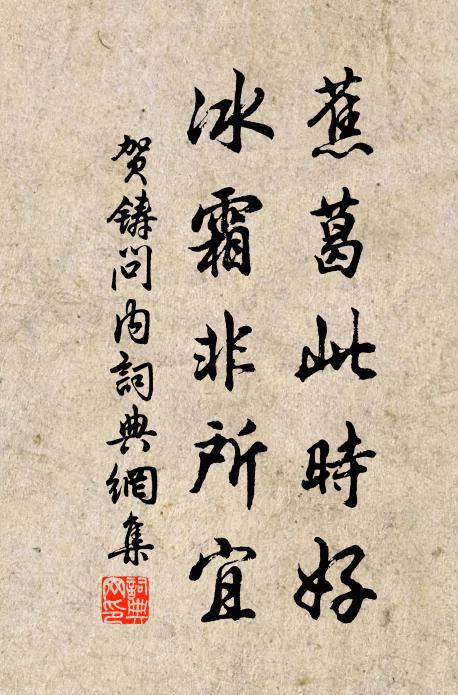 蕉葛此時好
冰霜非所宜
贺鑄問内詞典網集
詞典網印